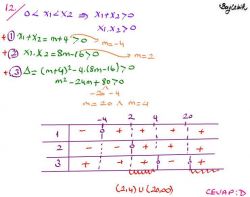 12.
0 < x₁ < x₂ ⇒ x₁+x₂>0
x₁.x₂>0
+ ① x₁+x₂ = m+4 > 0
m=-4
+ ② x₁.x₂ = 8m-16 > 0
m=2
+ ③ Δ = (m+4)²-4.(8m-16) > 0
m²-24m+80 > 0
-20 -4
m=20 ∧ m=4
-4 2 4 20
1 - + + + +
2 - - + + +
3 + + + - +
(2,4) ∪ (20,∞)
CEVAP: D